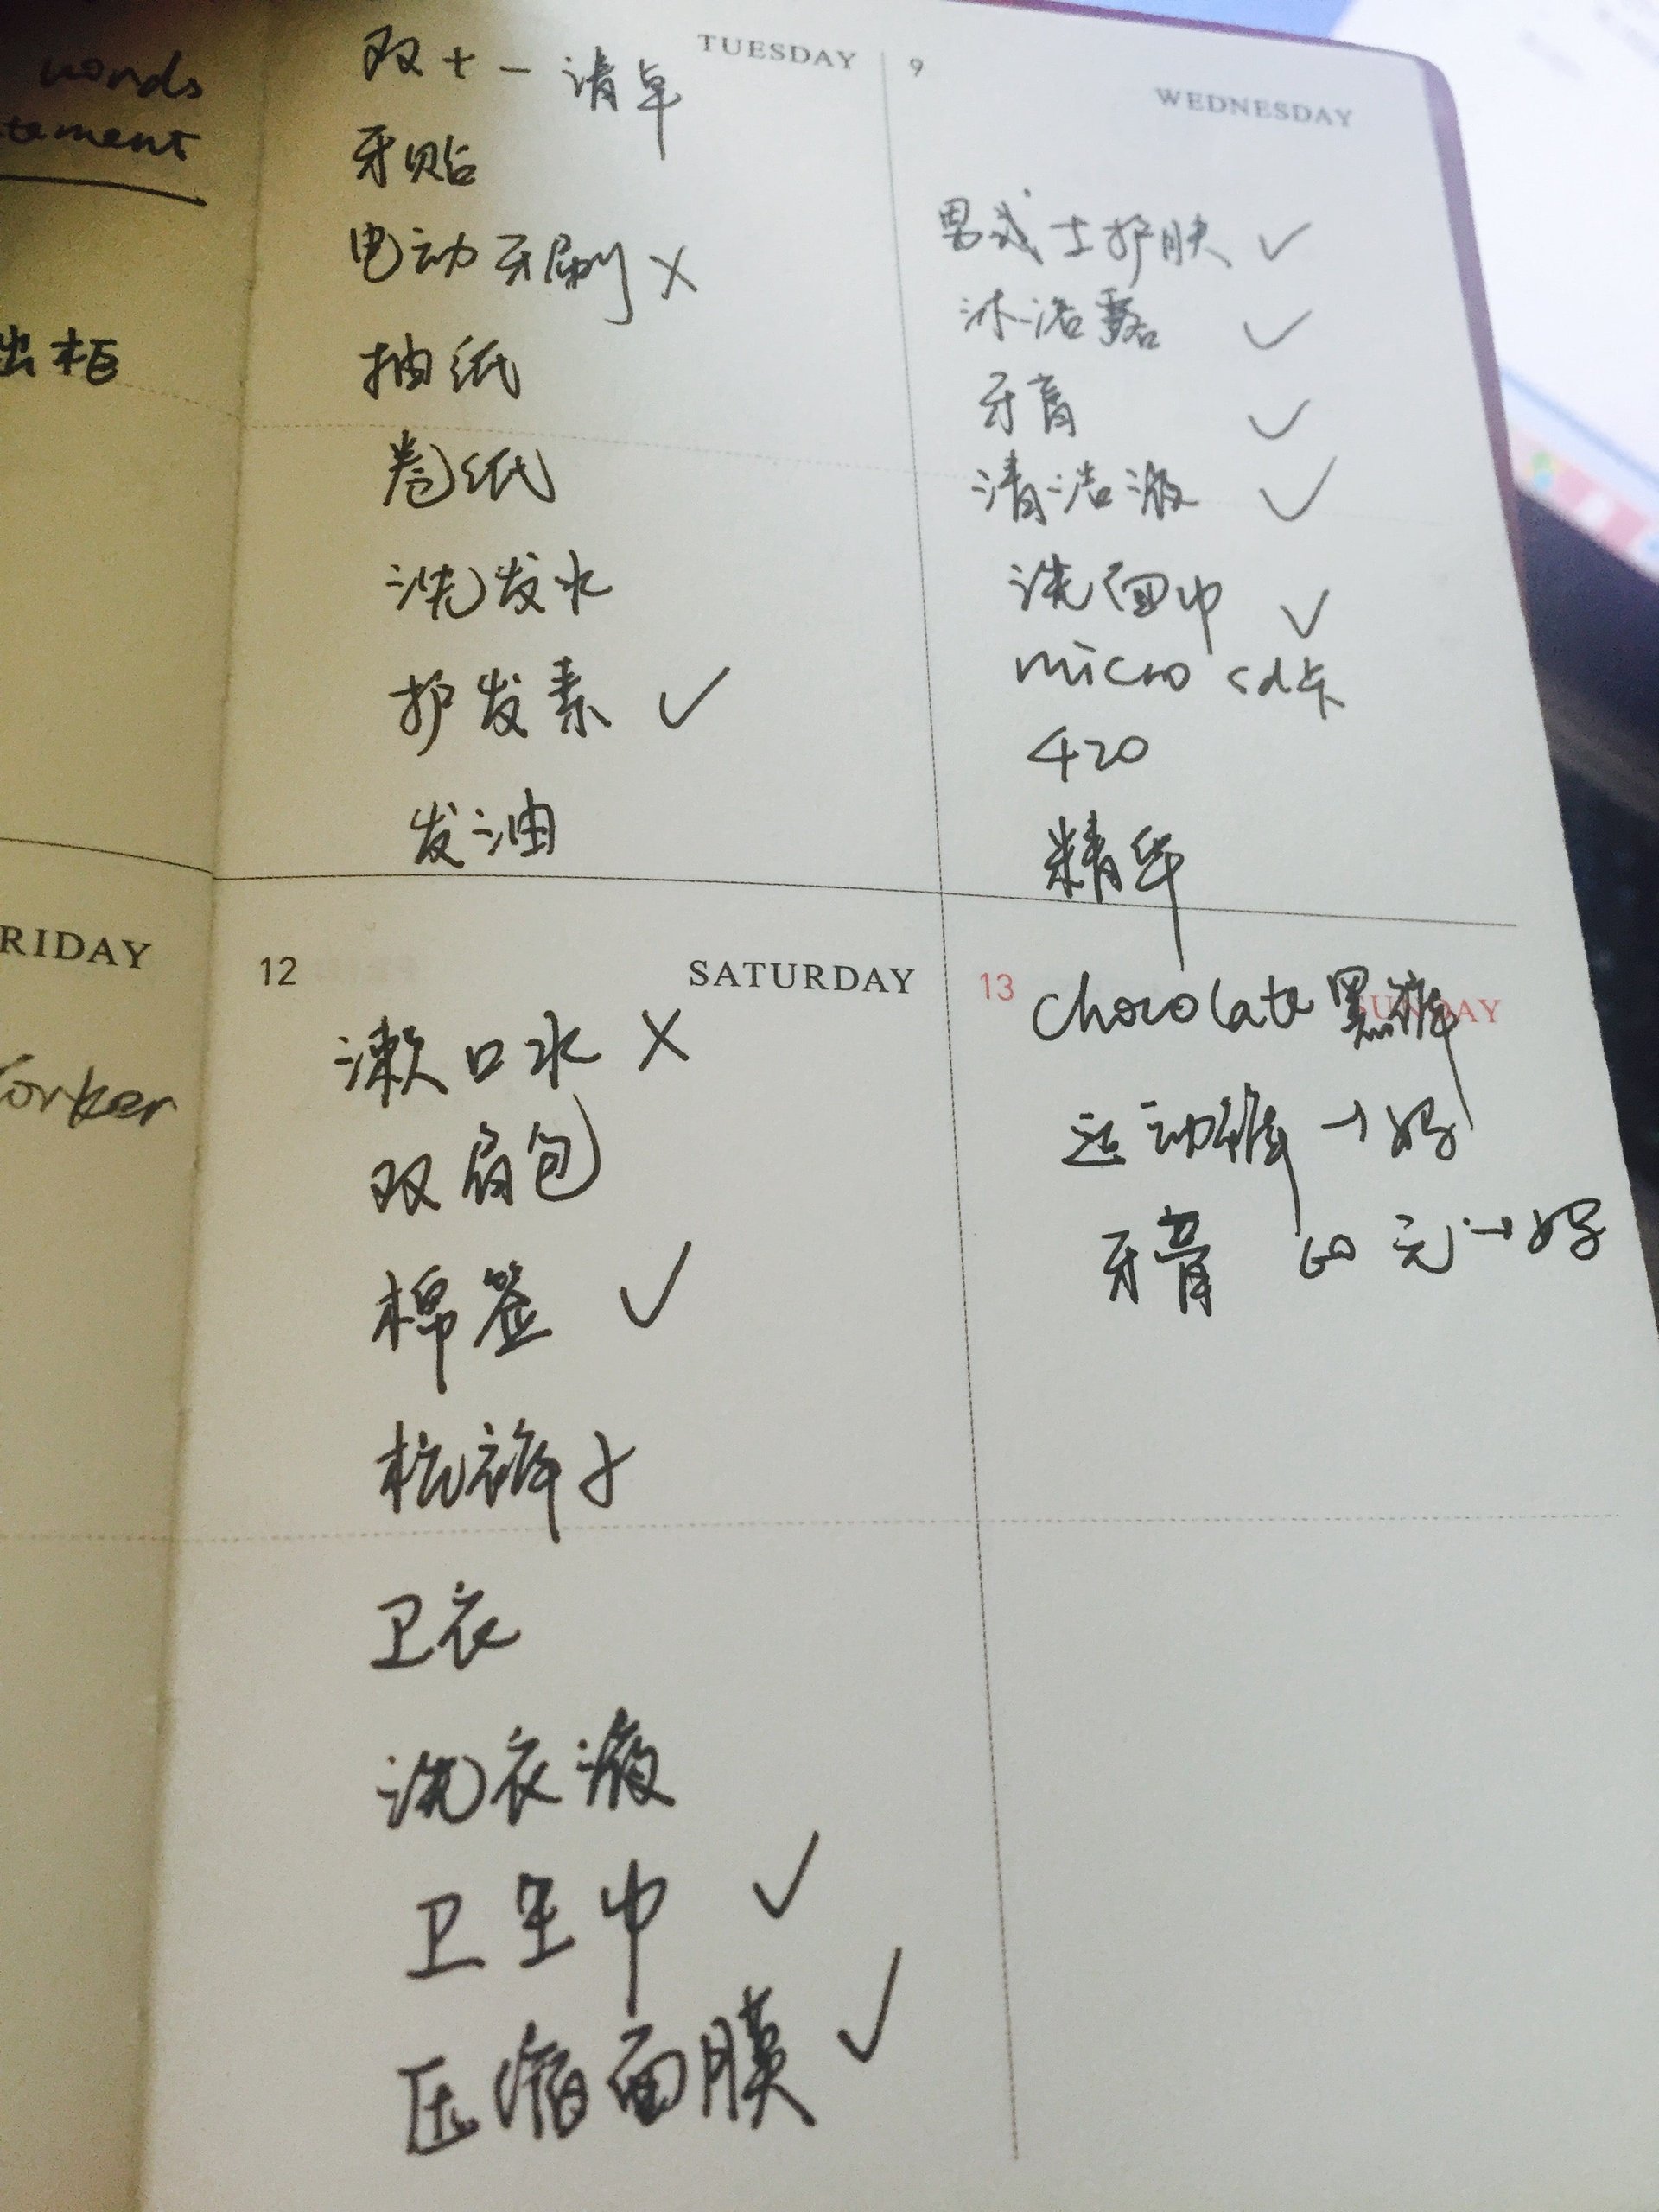 words
tement
出柜
RIDAY
orker
TUESDAY
双十一清单
牙贴
电动牙刷 ×
抽纸
卷纸
洗发水
护发素 ✓
发油
9 WEDNESDAY
男士护肤 ✓
沐浴露 ✓
牙膏 ✓
清洁液 ✓
洗面巾 ✓
micro sd卡
420
精华
12 SATURDAY
漱口水 ×
双肩包
棉签 ✓
裤子
卫衣
洗衣液
卫生巾 ✓
压缩面膜 ✓
13 SUNDAY
chocolate 黑裤
运动裤 → 好
牙膏 60元 → 好